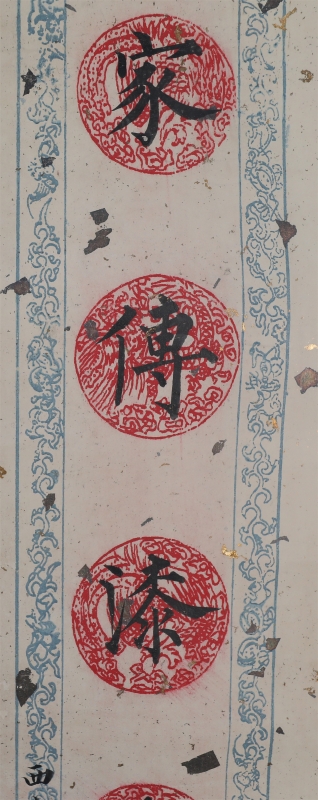 家傳漆
西